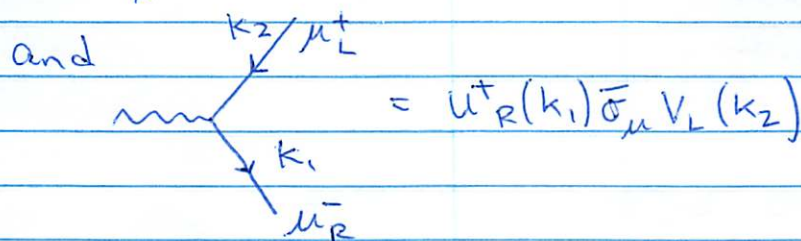 and
k₂ μ⁺_L
= u⁺_R(k₁) σ̄_μ V_L(k₂)
k₁
μ⁻_R